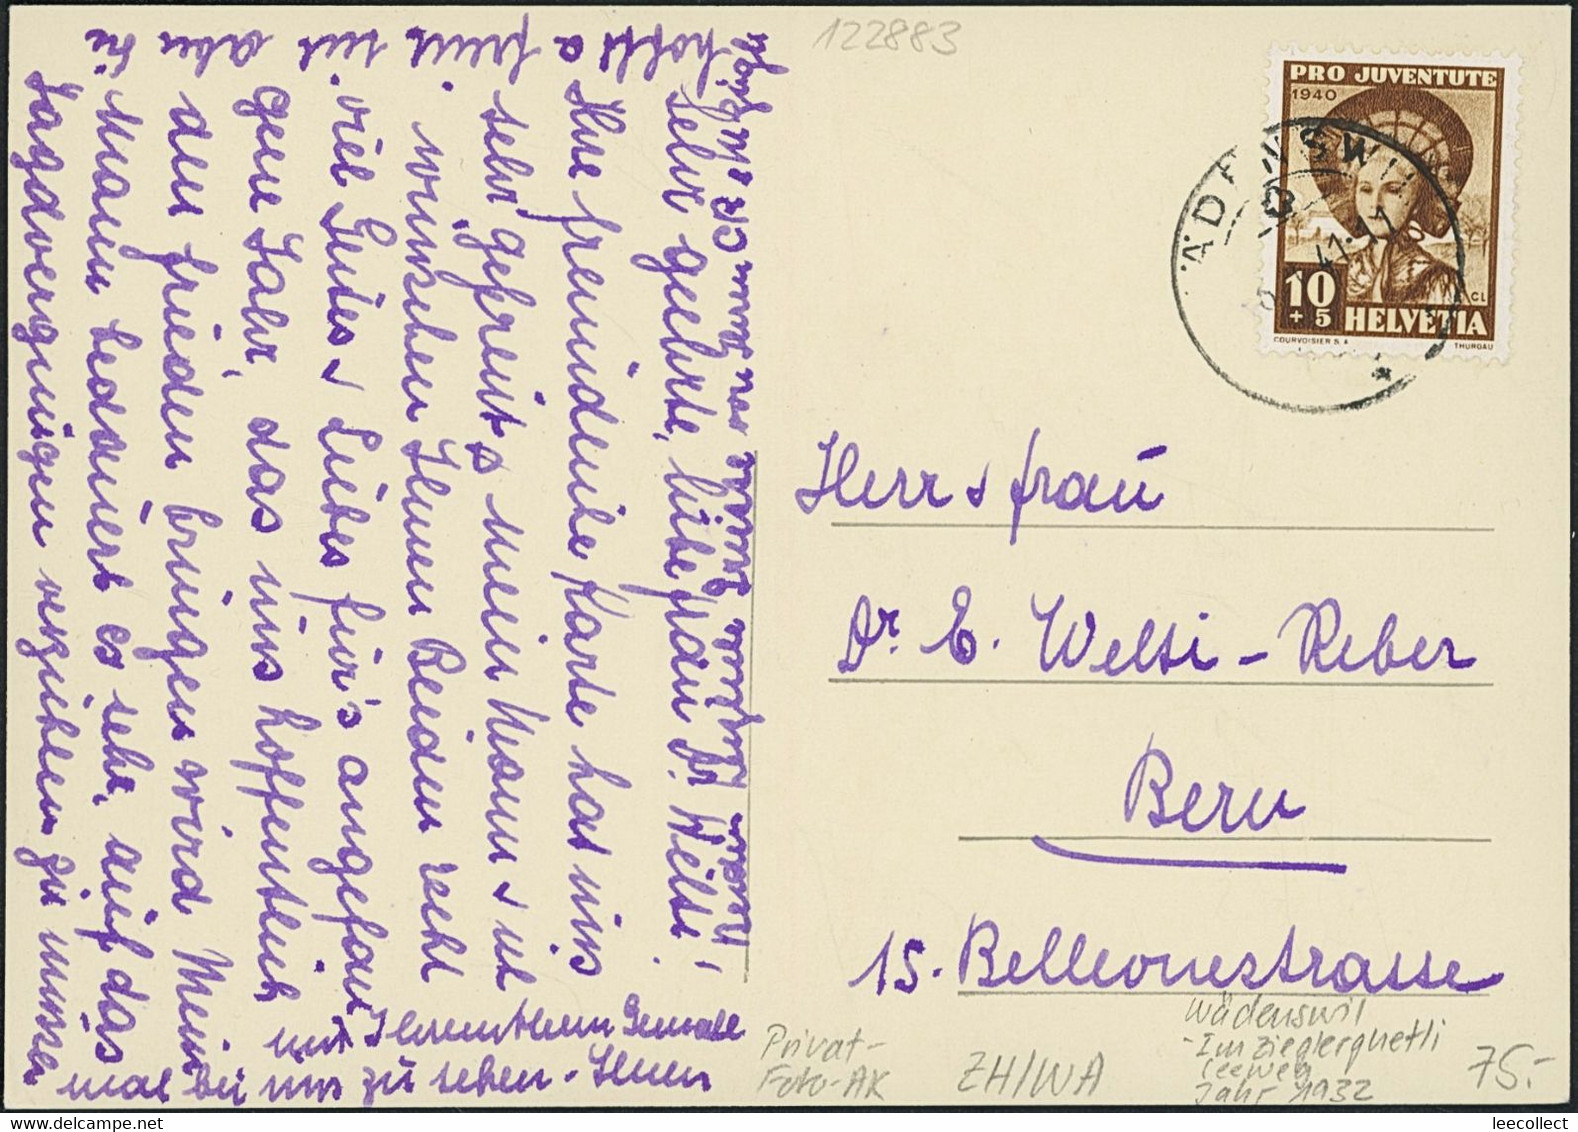 122883
PRO JUVENTUTE
1940
10
+5
HELVETIA
CL
COURVOISIER S.A
THURGAU
WÄDENSWIL
Herr & Frau
Dr. E. Welti-Reber
Bern
15. Bellevuestrasse
Sehr geehrte, liebe Frau Dr. Welti!
Ihre freundliche Karte hat uns
sehr gefreut & mein Mann & ich
wünschen Ihnen Beiden recht
viel Gutes & Liebes für's angefan
gene Jahr, das uns hoffentlich
den Frieden bringen wird. Mein
Mann bedauert es sehr, auf das
Jagdvergnügen verzichten zu müssen
aber
mit Ihrem Herrn Gemahl
mal bei uns zu sehen. Ihnen
Privat-
Foto-AK
ZH/WA
Wädenswil
-Im Zieglerguetli
Leeweg
Jahr 1932
75.-
leecollect